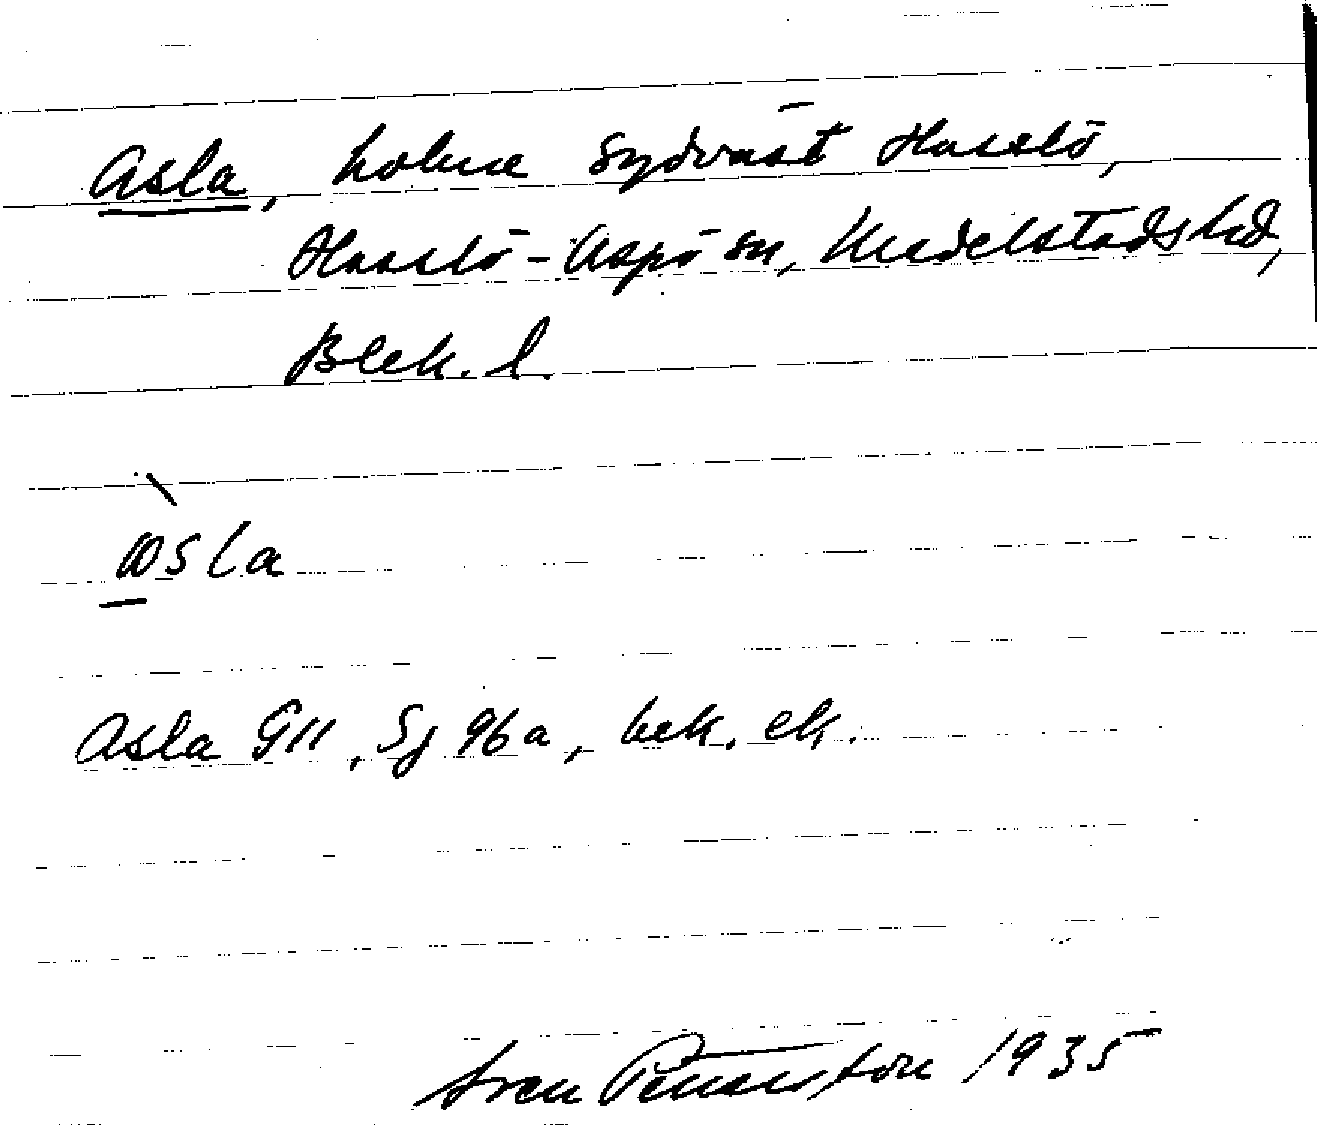 Asla, holme sydväst Hasslö,
Hasslö-Aspö sn, Medelstads hd,
Blek. l.
ɑsla
Asla GII, Sj 96a, bek. ek.
Sven Petersson 1935